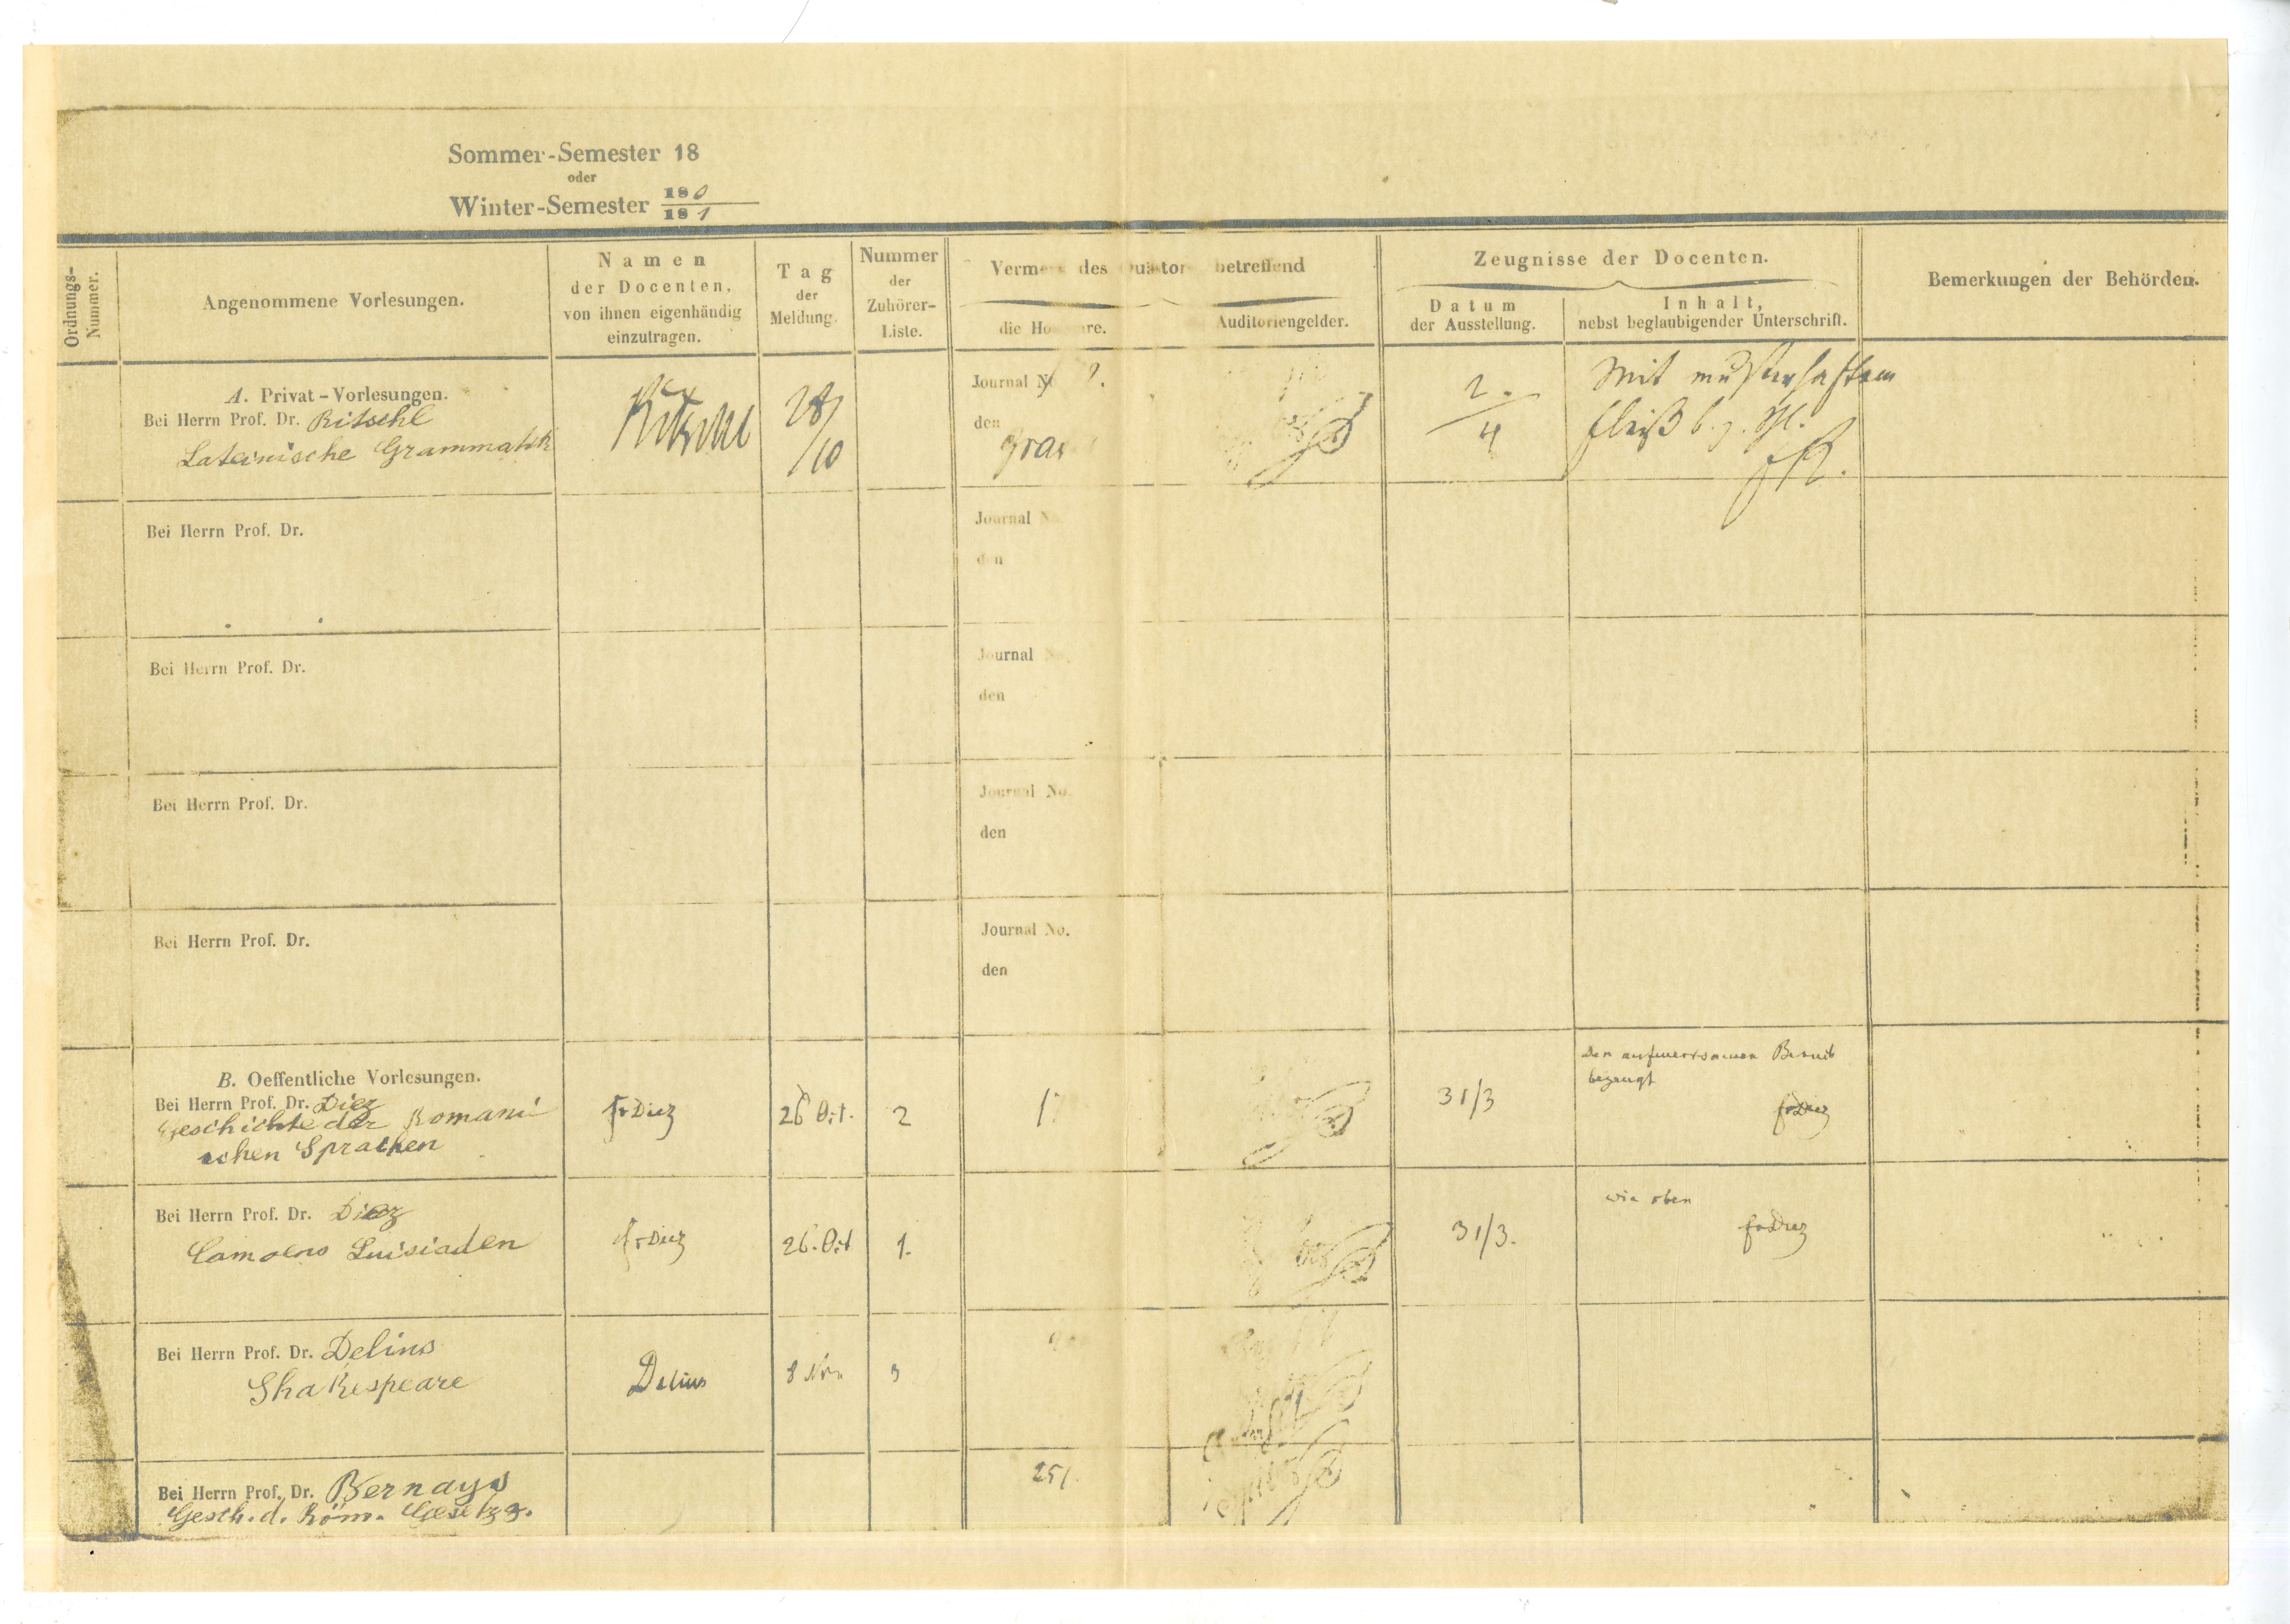 Sommer-Semester 18
oder
Winter-Semester 180
181
Ordnungs-
Nummer.
Angenommene Vorlesungen.
Namen
der Docenten,
von ihnen eigenhändig
einzutragen.
Tag
der
Meldung.
Nummer
der
Zuhörer-
Liste.
des betreffend
die
Auditoriengelder.
Zeugnisse der Docenten.
Datum
der Ausstellung.
Inhalt,
nebst beglaubigender Unterschrift.
Bemerkungen der Behörden.
A. Privat-Vorlesungen.
Bei Herrn Prof. Dr. Ritschl
Lateinische Grammatik
Ritschl
28/
/10
Journal
den
2.
4
Mit musterhaftem
Fleiß
FR.
Bei Herrn Prof. Dr.
Journal
den
Bei Herrn Prof. Dr.
Journal
den
Bei Herrn Prof. Dr.
Journal No.
den
Bei Herrn Prof. Dr.
Journal No.
den
B. Oeffentliche Vorlesungen.
Bei Herrn Prof. Dr. Diez
Geschichte der Romani
schen Sprachen
Fr Diez
26 Oct.
2
31/3
Den aufmerksamen Besuch
bezeugt
Fr Diez
Bei Herrn Prof. Dr. Diez
Camoens Luisiaden
Fr Diez
26. Oct
1.
31/3.
wie oben
Fr Diez
Bei Herrn Prof. Dr. Delius
Shakespeare
Delius
8 Nov
3
Bei Herrn Prof. Dr. Bernays
Gesch. d. Röm. Gesetzg.